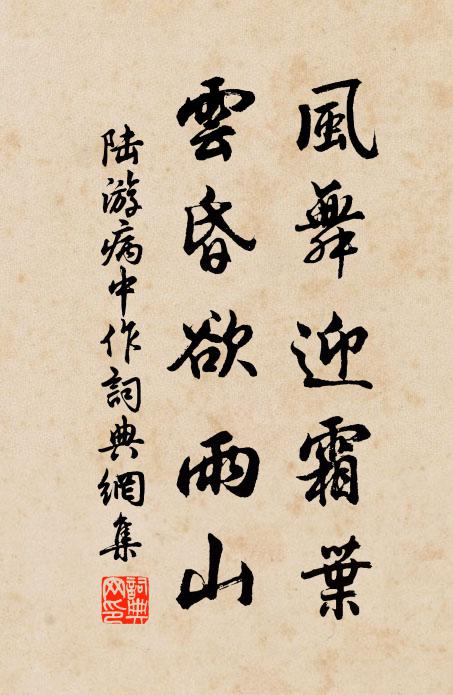 風舞迎霜葉
雲昏欲雨山
陸游病中作詞典網集
詞典
网印